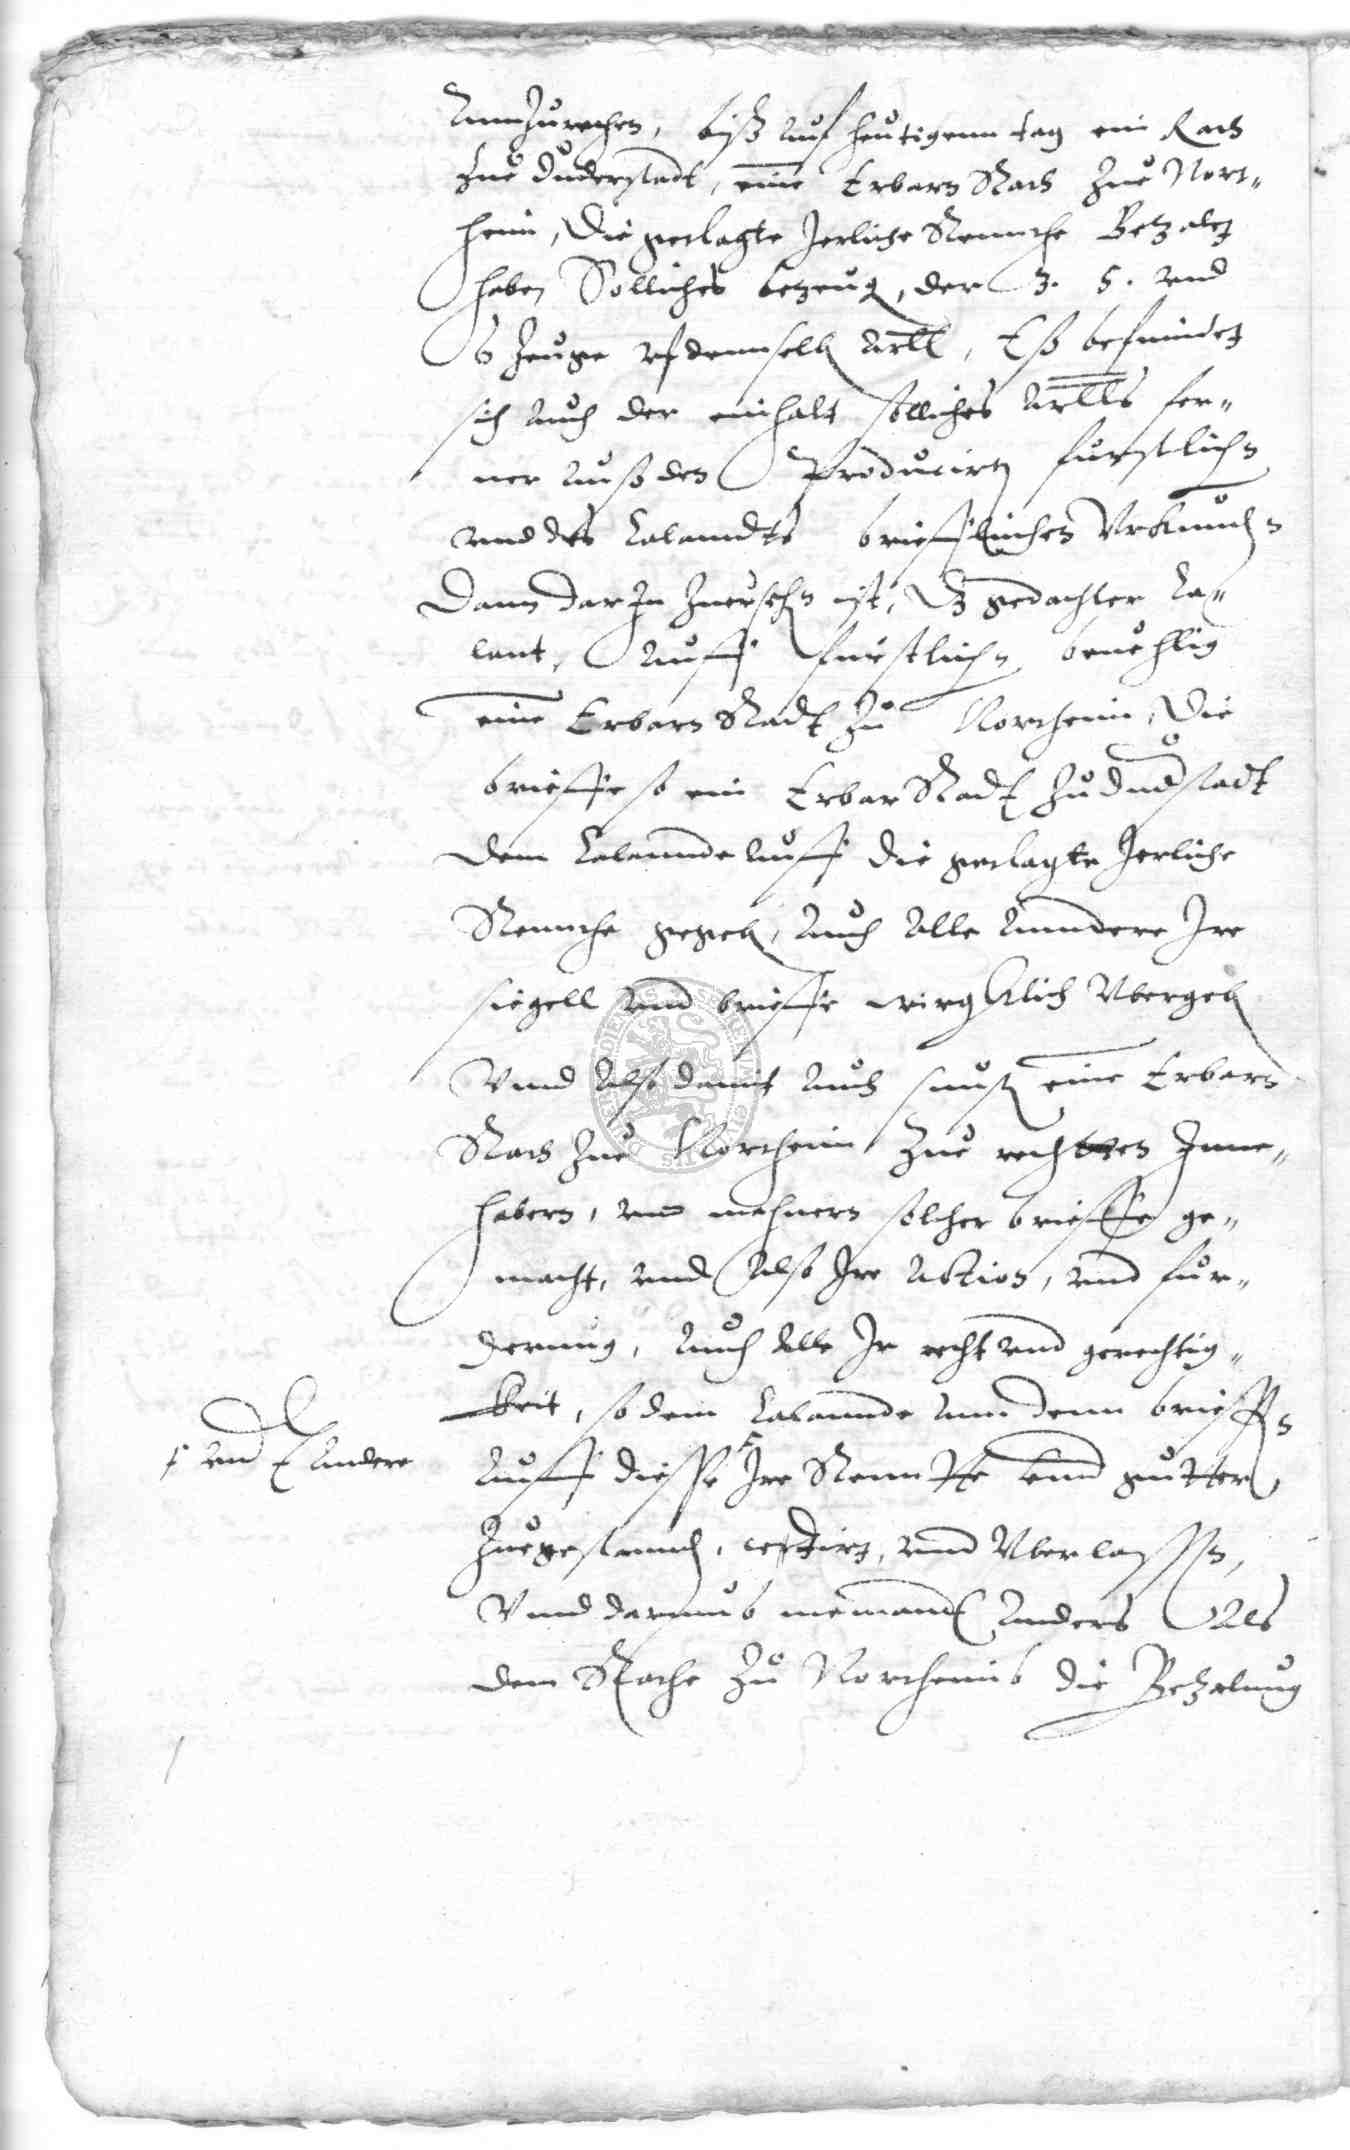 Annzurechen, biß auf heutigenn tag ein Rath
zue Duderstadt, eine Erbarn Rath zue Nort-
heim, Die geclagte Jerliche Rennthe Betzalet
haben Solliches betzeugt, der 3. 5. vnd
6 zeuge vf dennselben artl, Eß befindet
sich auch der einhalt solliches artlls fer-
ner auß den Producirten furstlichen
vnd des Calanndts brieflichen Vrkunden
Dann dar In zuersehen ist, Dz gedachter Ca-
lant, Auff furstlichen beuehlig
eine Erbarn Radt zu Northeim, Die
brieffe so ein Erbar Radt zu duderstadt
dem Calannde auff die geclagte Jerliche
Rennthe gegeben, Auch Alle Anndere Ire
siegell vnd brieffe wirgklich Vbergeben
Vnnd Also damit auch sunst eine Erbarn
Rath zue Northeim zue rechten Inne-
habern, vnd mehnern solcher brieffe ge-
macht, vnd Also Ire Aktion, vnd fur-
derung, Auch Alle Ir recht vnd gerechtig-
keit, so dem Calannde Ann denn brieffen
vnd Andere
Auff diesse Ire Rennthe vnnd gutter
zuegestannden, cedirt, vnnd Vberlassen,
Vnnd darumb niemandt Anders Als
dem Rathe zu Northeimb die Betzalung